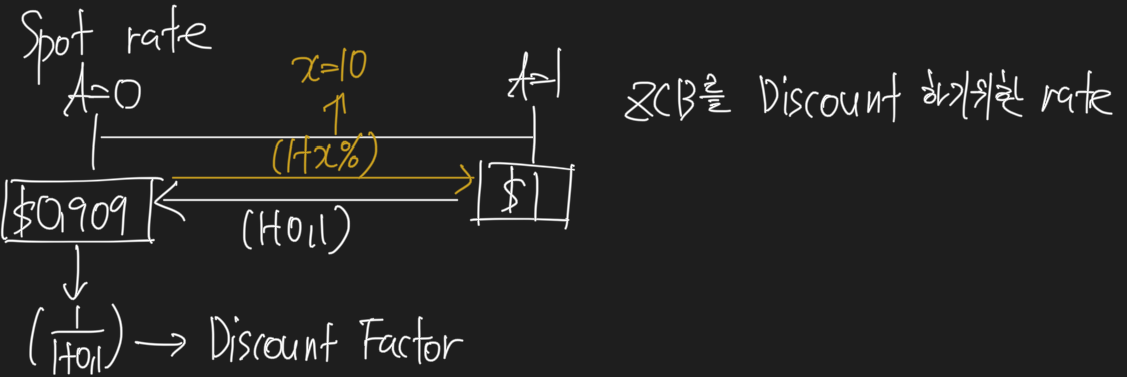 Spot rate
t=0
x=10
t=1
ZCB를 Discount 하기위한 rate
(1+x%)
$0.909
$1
(1+0.1)
(1/1+0.1) → Discount Factor